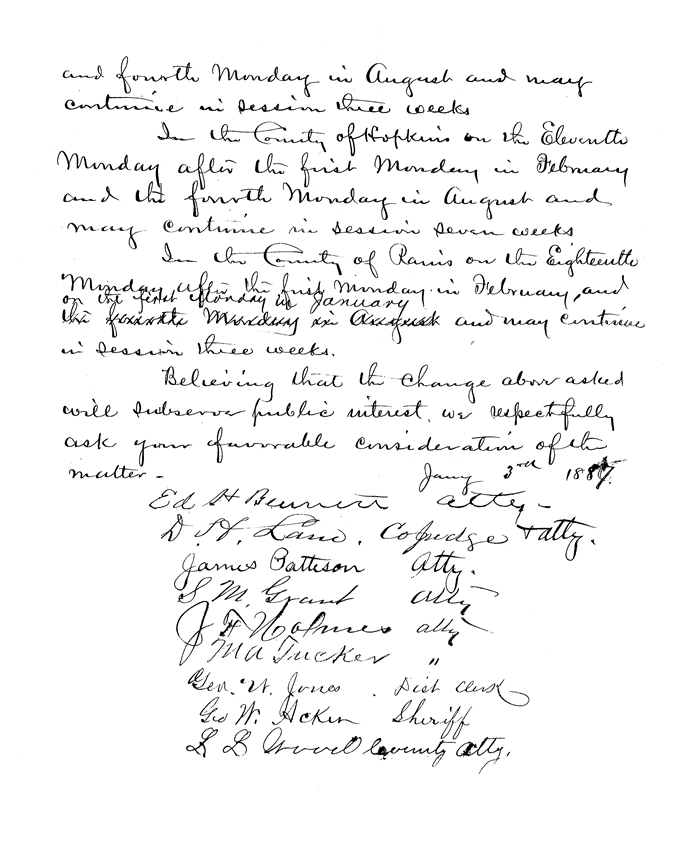 and fourth Monday in August and may
continue in session three weeks
In the County of Hopkins on the Eleventh
Monday after the first Monday in February
and the fourth Monday in August and
may continue in session seven weeks
In the County of Rains on the Eighteenth
Monday after the first Monday in February, and
on the first Monday in January
the fourth Monday in August and may continue
in session three weeks.
Believing that the change above asked
will subserve public interest, we respectfully
ask your favorable consideration of the
matter -
Jany 3rd 1887.
Ed H Bennett atty -
D. H. Lane. Co Judge & atty.
James Patteson Atty.
S M. Grant atty
J F Holmes atty
M A Tucker "
Geo. W. Jones. Dist Clerk
Geo W. Acker Sheriff
L L Wood County Atty.